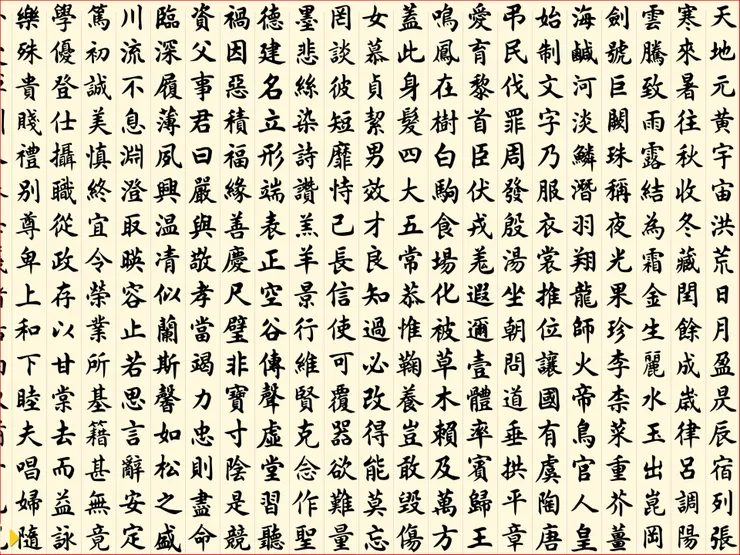 天地元黄宇宙洪荒日月盈昃辰宿列張
寒來暑往秋收冬藏閏餘成歳律呂調陽
雲騰致雨露結為霜金生麗水玉出崑岡
劍號巨闕珠稱夜光果珍李柰菜重芥薑
海鹹河淡鱗潛羽翔龍師火帝鳥官人皇
始制文字乃服衣裳推位讓國有虞陶唐
弔民伐罪周發殷湯坐朝問道垂拱平章
愛育黎首臣伏戎羌遐邇壹體率賓歸王
鳴鳳在樹白駒食場化被草木賴及萬方
蓋此身髮四大五常恭惟鞠養豈敢毀傷
女慕貞絜男效才良知過必改得能莫忘
罔談彼短靡恃己長信使可覆器欲難量
墨悲絲染詩讚羔羊景行維賢克念作聖
德建名立形端表正空谷傳聲虛堂習聽
禍因惡積福緣善慶尺璧非寶寸陰是競
資父事君曰嚴與敬孝當竭力忠則盡命
臨深履薄夙興温凊似蘭斯馨如松之盛
川流不息淵澄取暎容止若思言辭安定
篤初誠美慎終宜令榮業所基籍甚無竟
學優登仕攝職從政存以甘棠去而益詠
樂殊貴賤禮別尊卑上和下睦夫唱婦隨